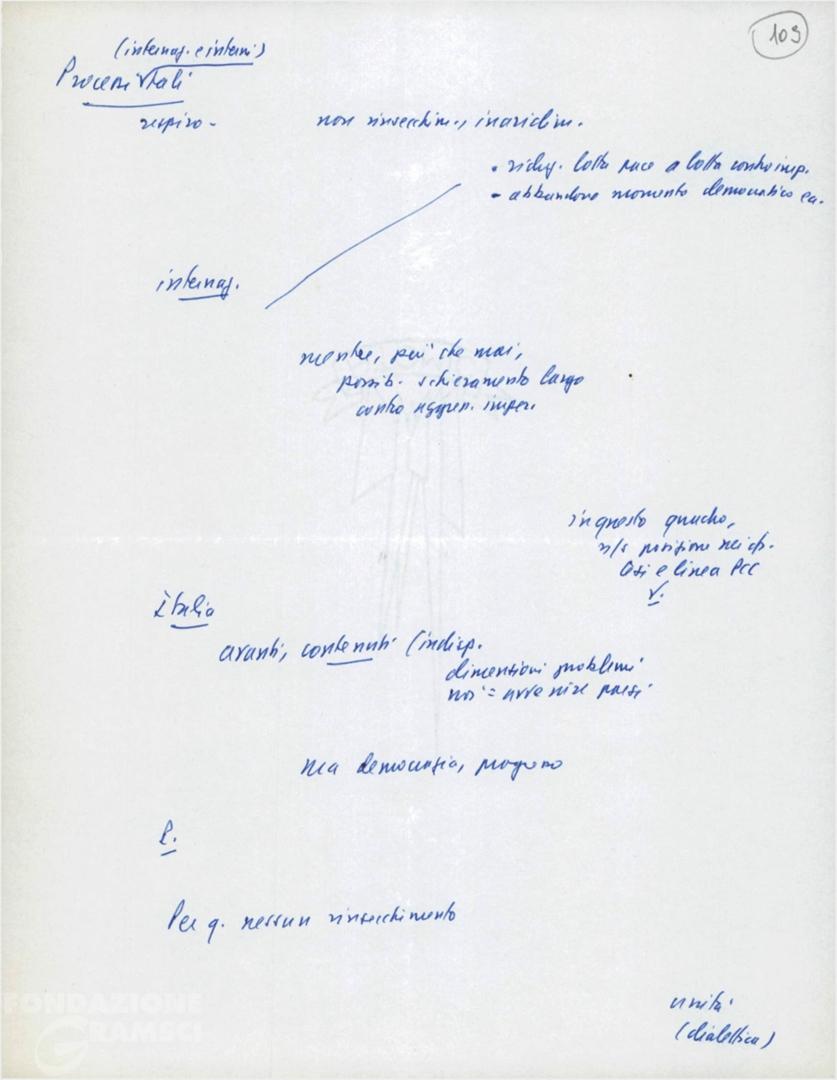 109
(internaz. e interni)
Processi vitali
respiro - non rinsecchim., inaridim.
• riduz. lotta pace a lotta contro imp.
- abbandono momento democratico ecc.
internaz.
mentre, più che mai,
possib. schieramento largo
contro aggress. imper.
in questo quadro,
posizione
e linea PCC
V.
Italia
avanti, contenuti (indisp.
dimensioni problemi
noi = avvenire paese
ma democrazia, progresso
P.
Per q. nessun rinsecchimento
unità
(dialettica)
FONDAZIONE
GRAMSCI